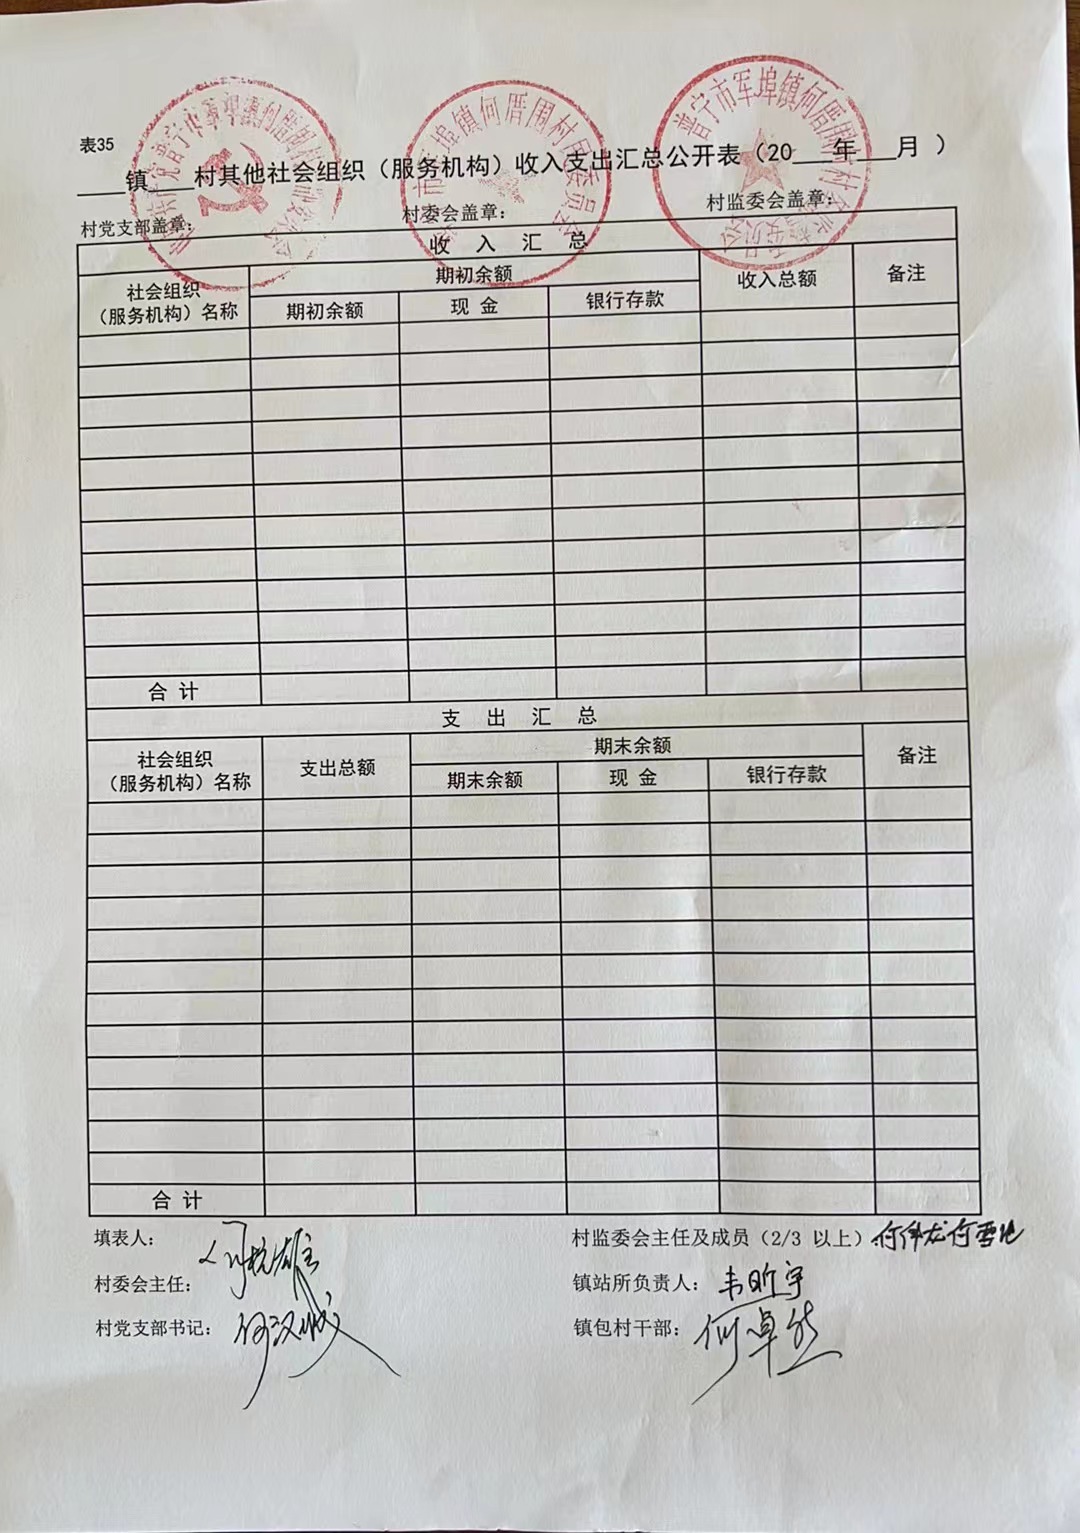 表35
____镇____村其他社会组织（服务机构）收入支出汇总公开表（20___年___月 ）
村党支部盖章： 村委会盖章： 村监委会盖章：
普宁市军埠镇何厝围村
市军埠镇何厝围村民委员会
普宁市军埠镇何厝围村
收 入 汇 总
社会组织（服务机构）名称 期初余额 收入总额 备注
期初余额 现 金 银行存款
合 计
支 出 汇 总
社会组织（服务机构）名称 支出总额 期末余额 备注
期末余额 现 金 银行存款
合 计
填表人： 村监委会主任及成员（2/3 以上） 何伟龙
村委会主任： 镇站所负责人： 韦昕宇
村党支部书记： 何汉城 镇包村干部： 何卓然